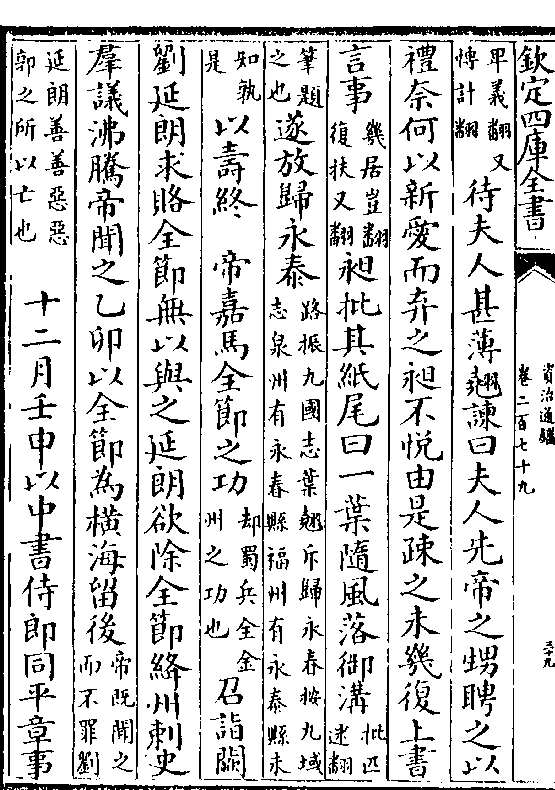 欽定四庫全書
資治通鑑
卷二百七十九
三十九
卑義翻又
慱計翻
待夫人甚薄翹諫曰夫人先帝之甥聘之以
禮奈何以新愛而弃之昶不悅由是疎之未幾復上書
言事
幾居豈翻
復扶又翻
昶批其紙尾曰一葉隨風落御溝
批匹
迷翻
筆題
之也
遂放歸永泰
路振九國志葉翹斥歸永春按九域
志泉州有永春縣福州有永泰縣未
知孰
是
以壽終　帝嘉馬全節之功
却蜀兵全金
州之功也
召詣闕
劉延朗求賂全節無以與之延朗欲除全節絳州刺史
羣議沸騰帝聞之乙卯以全節為橫海留後
帝既聞之
而不罪劉
延朗善善惡惡
郭之所以亡也
十二月壬申以中書侍郎同平章事